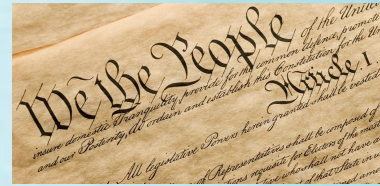 We the People of the United
insure domestic Tranquility, provide for the common defence, promote
and our Posterity, do ordain and establish this Constitution for the Un
Article. I.
All legislative Powers herein granted shall be vested
of Representatives shall be composed of
requisite for Electors of the most
who shall not have a